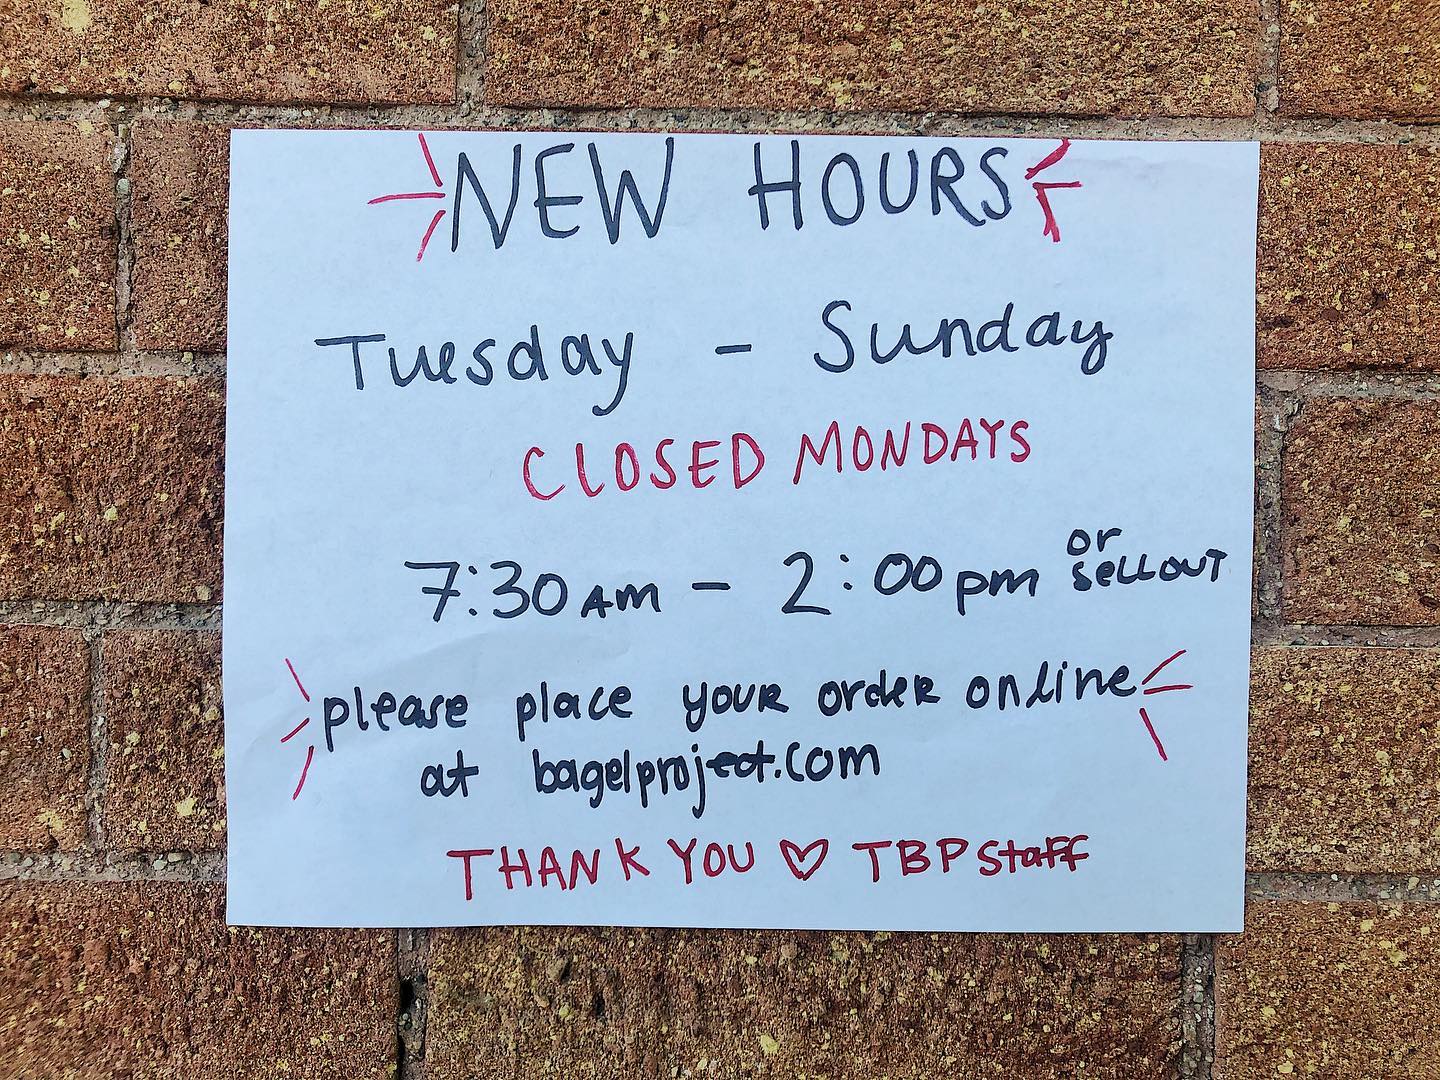 NEW HOURS
Tuesday - Sunday
CLOSED MONDAYS
7:30 AM - 2:00 pm or sellout
please place your order online
at bagelproject.com
THANK YOU ♡ TBP staff